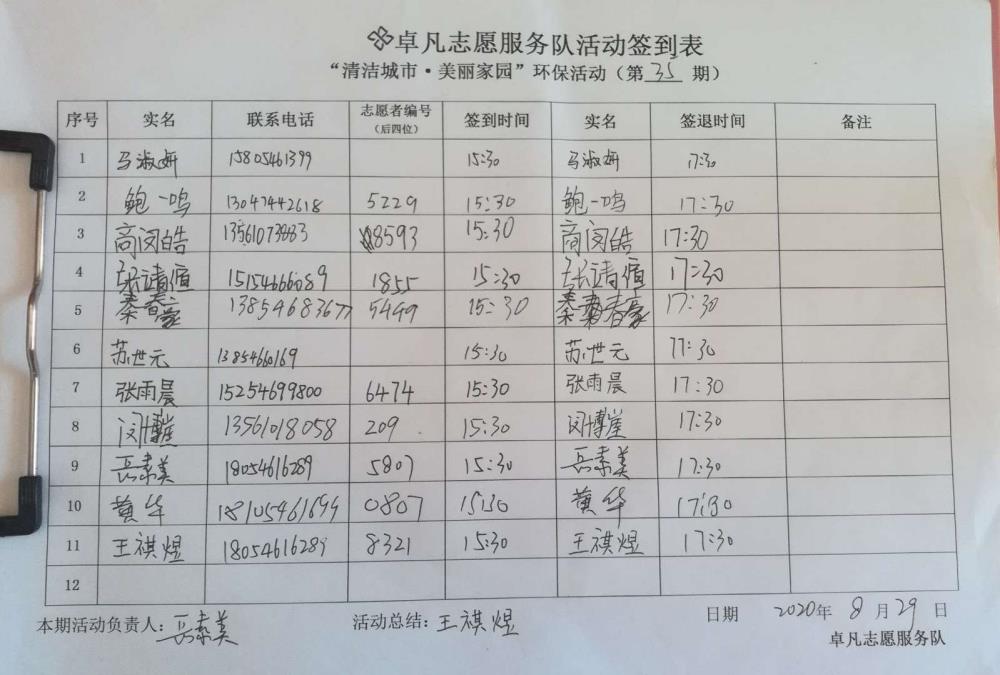 卓凡志愿服务队活动签到表
“清洁城市·美丽家园”环保活动（第 35 期）
序号 实名 联系电话 志愿者编号（后四位） 签到时间 实名 签退时间 备注
1 马淑妍 15805461399 15:30 马淑妍 17:30
2 鲍一鸣 13047442618 5229 15:30 鲍一鸣 17:30
3 商闵皓 8593 15:30 商闵皓 17:30
4 张靖值 15154666089 1855 15:30 张靖值 17:30
5 秦春豪 13854683677 5449 15:30 秦春豪 17:30
6 苏世元 13854660169 15:30 苏世元 17:30
7 张雨晨 15254699800 6474 15:30 张雨晨 17:30
8 闵博崔 13561018058 209 15:30 闵博崔 17:30
9 岳素美 18054616289 5807 15:30 岳素美 17:30
10 黄华 0807 15:30 黄华 17:30
11 王祺煜 18054616289 8321 15:30 王祺煜 17:30
12
本期活动负责人：岳素美 活动总结：王祺煜 日期 2020年 8 月 29 日
卓凡志愿服务队